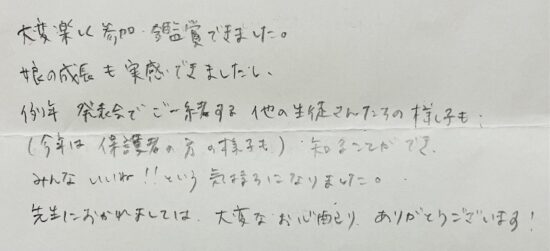 大変楽しく参加・鑑賞できました。
娘の成長も実感できましたし、
例年 発表会でご一緒する他の生徒さんたちの様子も、
(今年は保護者の方の様子も) 知ることができ、
みんないいね!!という気持ちになりました。
先生におかれましては、大変なお心配り、ありがとうございます!